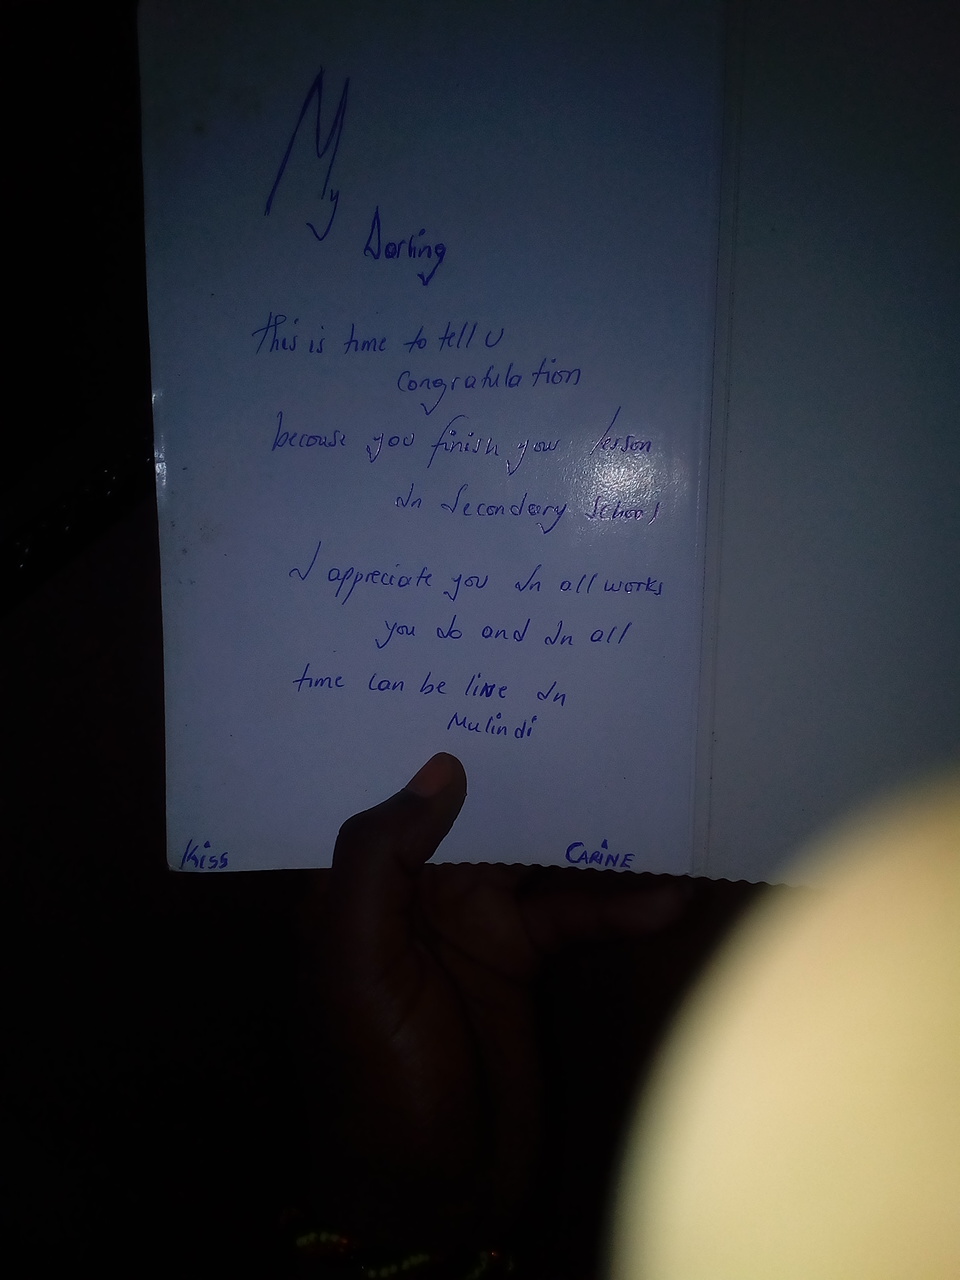 My
Darling
this is time to tell U
congratulation
becouse you finish your lesson
In Secondary School
I appreciate you In all works
you do and In all
time can be live In
Mulindi
Kiss
CARINE